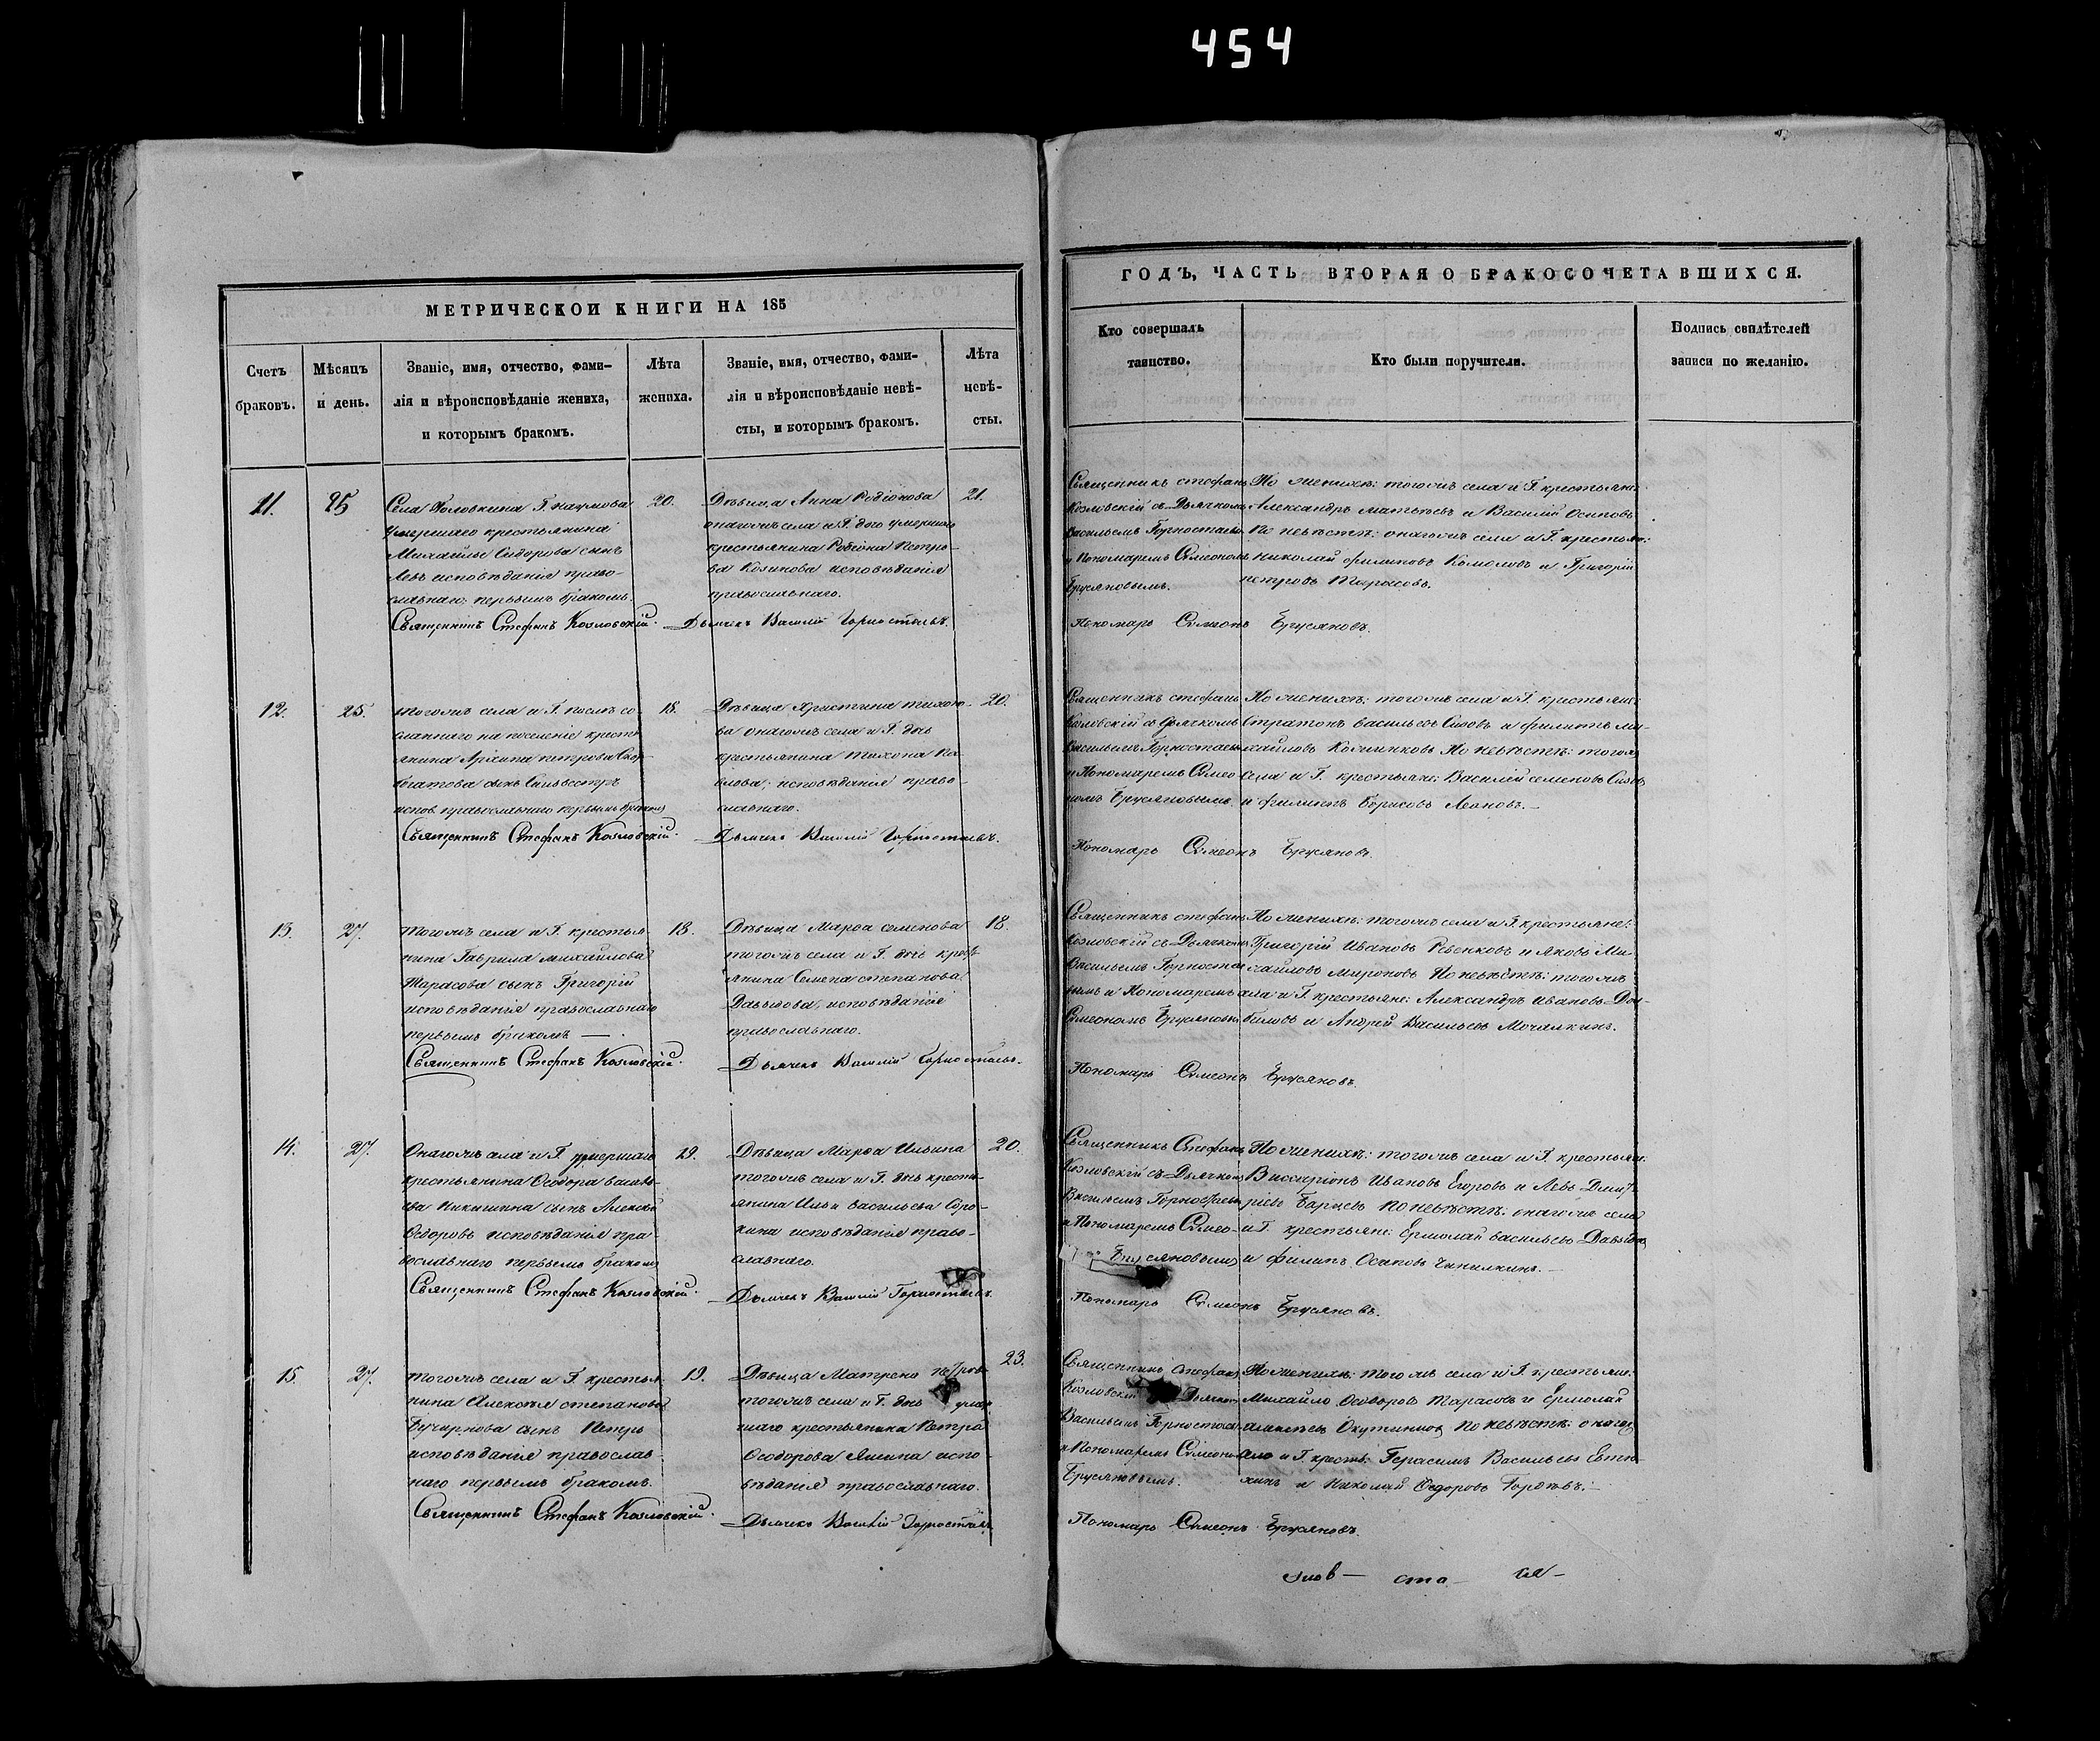 454
МЕТРИЧЕСКОЙ КНИГИ НА 185
Счетъ браковъ.
Мѣсяцъ и день.
Званіе, имя, отчество, фами-
лія и вѣроисповѣданіе жениха,
и которымъ бракомъ.
Лѣта жениха.
Званіе, имя, отчество, фами-
лія и вѣроисповѣданіе невѣ-
сты, и которымъ бракомъ.
Лѣта невѣ-
сты.
11.
25
Села Головкина Г. Наумова
умершаго крестьянина
Михайлы Сидорова сынъ
Левъ исповѣданія право-
славнаго первымъ бракомъ.
20.
Дѣвица Анна Родіонова
онагожъ села и Г. дочь умершаго
крестьянина Родіона Петро-
ва Козикова исповѣданія
православнаго.
21.
Священникъ Стефанъ Козловскій. Дьячекъ Василій Горностаевъ.
12.
25.
тогожъ села и Г. послѣ со-
сланнаго на поселеніе кресть
янина Архипа Петрова Ско-
богатова сынъ Сильвестръ
испов. православнаго первымъ бракомъ
18.
Дѣвица Христина Тихоно-
ва онагожъ села и Г. дочь
крестьянина Тихона
исповѣданія право-
славнаго.
20.
Священникъ Стефанъ Козловскій. Дьячекъ Василій Горностаевъ.
13.
27.
тогожъ села и Г. крестья
нина Гаврила Михайлова
Тарасова сынъ Григорій
исповѣданія православнаго
первымъ бракомъ —
18.
Дѣвица Марѳа Семенова
тогожъ села и Г. дочь крест
янина Семена Степанова
Давыдова, исповѣданія
православнаго.
18.
Священникъ Стефанъ Козловскій. Дьячекъ Василій Горностаевъ.
14.
27.
Онагожъ села и Г. умершаго
крестьянина Ѳеодора Василь-
ева Никишина сынъ Алексѣй
Ѳедоровъ исповѣданія пра
вославнаго первымъ бракомъ
19.
Дѣвица Марѳа Ильина
тогожъ села и Г. дочь кресть-
янина Ильи Васильева Соро-
кина исповѣданія право-
славнаго.
20.
Священникъ Стефанъ Козловскій. Дьячекъ Василій Горностаевъ.
15.
27.
тогожъ села и Г. крестья
нина Алексѣя Степанова
сынъ Петръ
исповѣданія православ
наго первымъ бракомъ.
19.
Дѣвица Матрена Петрова
тогожъ села и Г. дочь умер
шаго крестьянина Петра
Ѳеодорова Яшина испо-
вѣданія православнаго.
23.
Священникъ Стефанъ Козловскій. Дьячекъ Василій Горностаевъ.
ГОДЪ, ЧАСТЬ ВТОРАЯ О БРАКОСОЧЕТАВШИХСЯ.
Кто совершалъ таинство.
Кто были поручители.
Подпись свидѣтелей записи по желанію.
Священникъ Стефанъ
Козловскій съ Дьячкомъ
Васильемъ Горностаев.
и Пономаремъ Симеономъ
Брусяновымъ.
По женихѣ: тогожъ села и Г. крестьяне
Александръ Матвѣевъ и Василій Осиповъ
По невѣстѣ: онагожъ села и Г. крестьяне:
Николай Филиповъ Комоловъ и Григорій
Петровъ
Пономарь Симеонъ Брусяновъ.
Священникъ Стефанъ
Козловскій съ Дьячкомъ
Васильемъ Горностаев
и Пономаремъ Симео-
номъ Брусяновымъ.
По женихѣ: тогожъ села и Г. крестьяне
Стратонъ Васильевъ Сизовъ и Филиппъ Ми-
хайловъ По невѣстѣ: тогожъ
села и Г. крестьяне: Василій Семеновъ Сизов
и Филиппъ Борисовъ Леоновъ. —
Пономарь Симеонъ Брусяновъ.
Священникъ Стефанъ
Козловскій съ Дьячкомъ
Васильемъ Горностае
вымъ и Пономаремъ
Симеономъ Брусяновым
По женихѣ: тогожъ села и Г. крестьяне:
Григорій Ивановъ Ребенковъ и Яковъ Ми-
хайловъ Мироновъ По невѣстѣ: тогожъ
села и Г. крестьяне: Александръ Ивановъ
и Андрей Васильевъ Мочалкинъ.
Пономарь Симеонъ Брусяновъ.
Священникъ Стефанъ
Козловскій съ Дьячкомъ
Васильемъ Горностаев
и Пономаремъ Симео-
Брусяновымъ
По женихѣ: тогожъ села и Г. крестьяне:
Виссаріонъ Ивановъ Егоровъ и Левъ Дмит-
ріевъ Борцовъ По невѣстѣ: онагожъ села
и Г. крестьяне: Ермолай Васильевъ Давыдов
и Филипъ Осиповъ Чипилкинъ. —
Пономарь Симеонъ Брусяновъ.
Священникъ Стефанъ
Козловскій Дьячком
Васильемъ Горностаев
и Пономаремъ Симеоном
Брусяновымъ.
По женихѣ: тогожъ села и Г. крестьяне.
Михайло Ѳеодоровъ Тарасовъ и Ермолай
По невѣстѣ: онагожъ
села и Г. крестьян: Герасимъ Васильевъ Евтю-
хинъ и Николай Ѳедоровъ
Пономарь Симеонъ Брусяновъ.